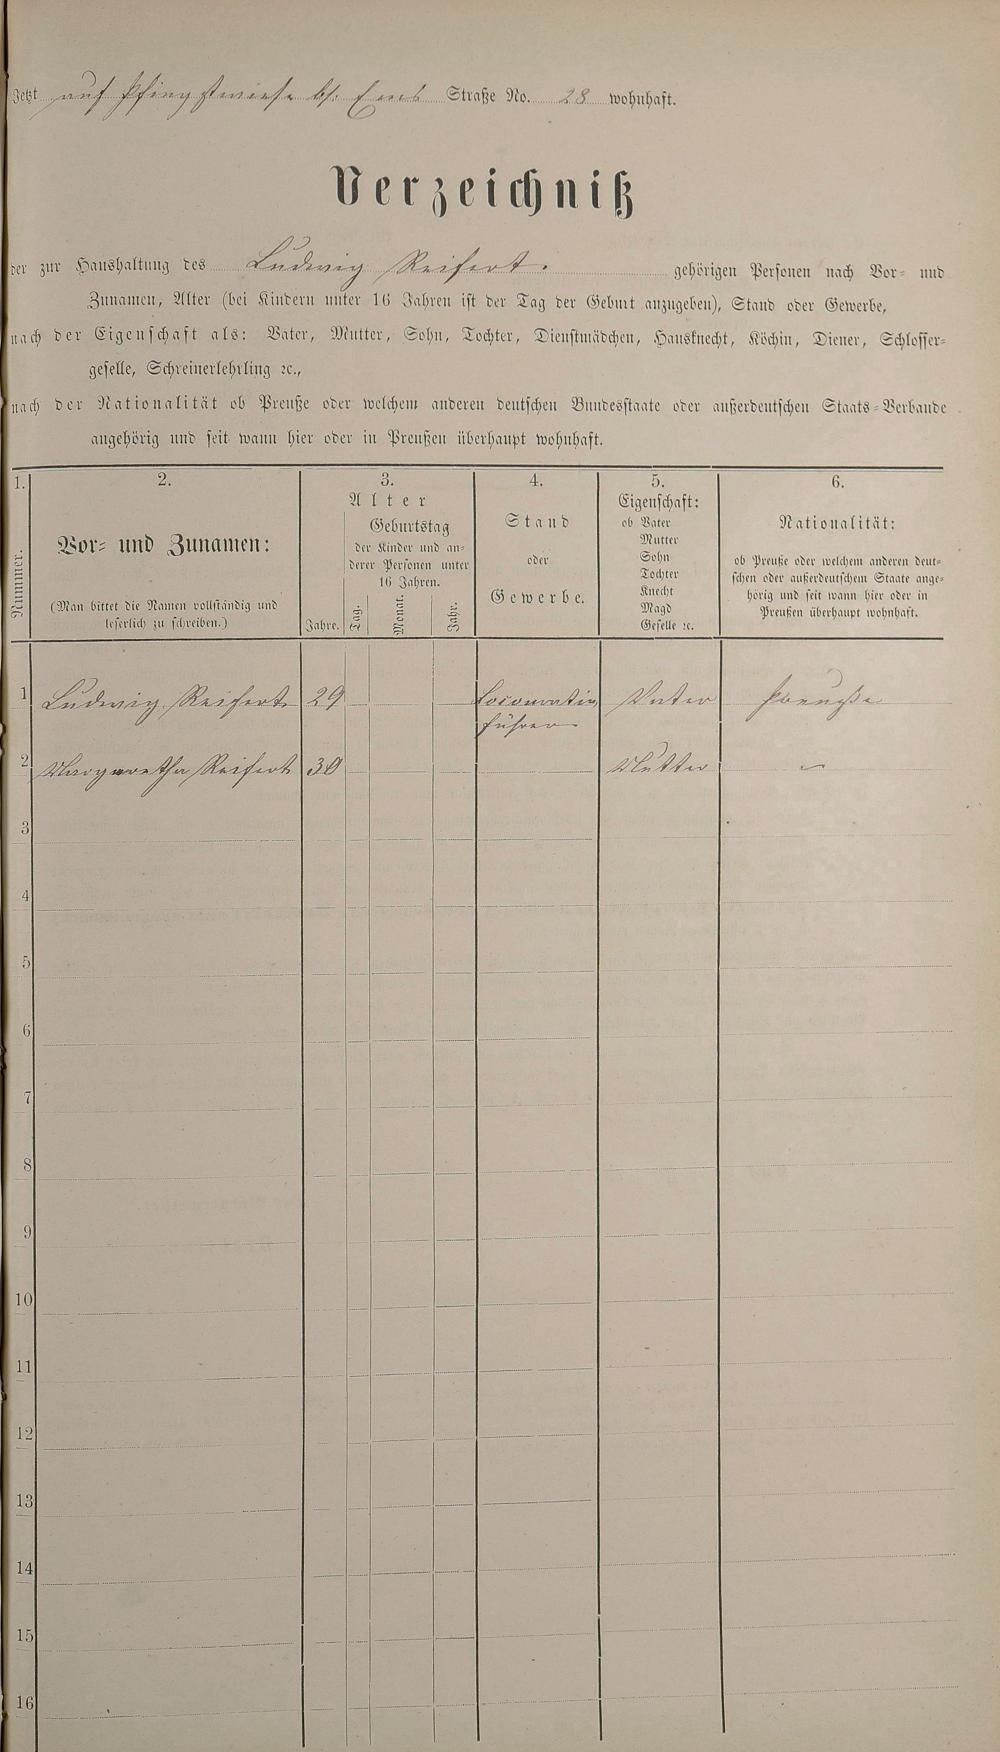 Jetzt auf Pfingstwiese b/. Ems Straße No. 28 wohnhaft.
Verzeichniß
der zur Haushaltung des Ludwig Reifert. gehörigen Personen nach Vor- und
Zunamen, Alter (bei Kindern unter 16 Jahren ist der Tag der Geburt anzugeben), Stand oder Gewerbe,
nach der Eigenschaft als: Vater, Mutter, Sohn, Tochter, Dienstmädchen, Hausknecht, Köchin, Diener, Schlosser-
geselle, Schreinerlehrling ꝛc.,
nach der Nationalität ob Preuße oder welchem anderen deutschen Bundesstaate oder außerdeutschen Staats-Verbande
angehörig und seit wann hier oder in Preußen überhaupt wohnhaft.
1.
Nummer.
2.
Vor- und Zunamen:
(Man bittet die Namen vollständig und
leserlich zu schreiben.)
3.
Alter
Jahre.
Geburtstag
der Kinder und an-
derer Personen unter
16 Jahren.
Tag.
Monat.
Jahr.
4.
Stand
oder
Gewerbe.
5.
Eigenschaft:
ob Vater
Mutter
Sohn
Tochter
Knecht
Magd
Geselle ꝛc.
6.
Nationalität:
ob Preuße oder welchem anderen deut-
schen oder außerdeutschem Staate ange-
hörig und seit wann hier oder in
Preußen überhaupt wohnhaft.
1 Ludwig Reifert 29 Locomotiv Vater Preuße
führer
2 Margaretha Reifert 30 Mutter "
3
4
5
6
7
8
9
10
11
12
13
14
15
16